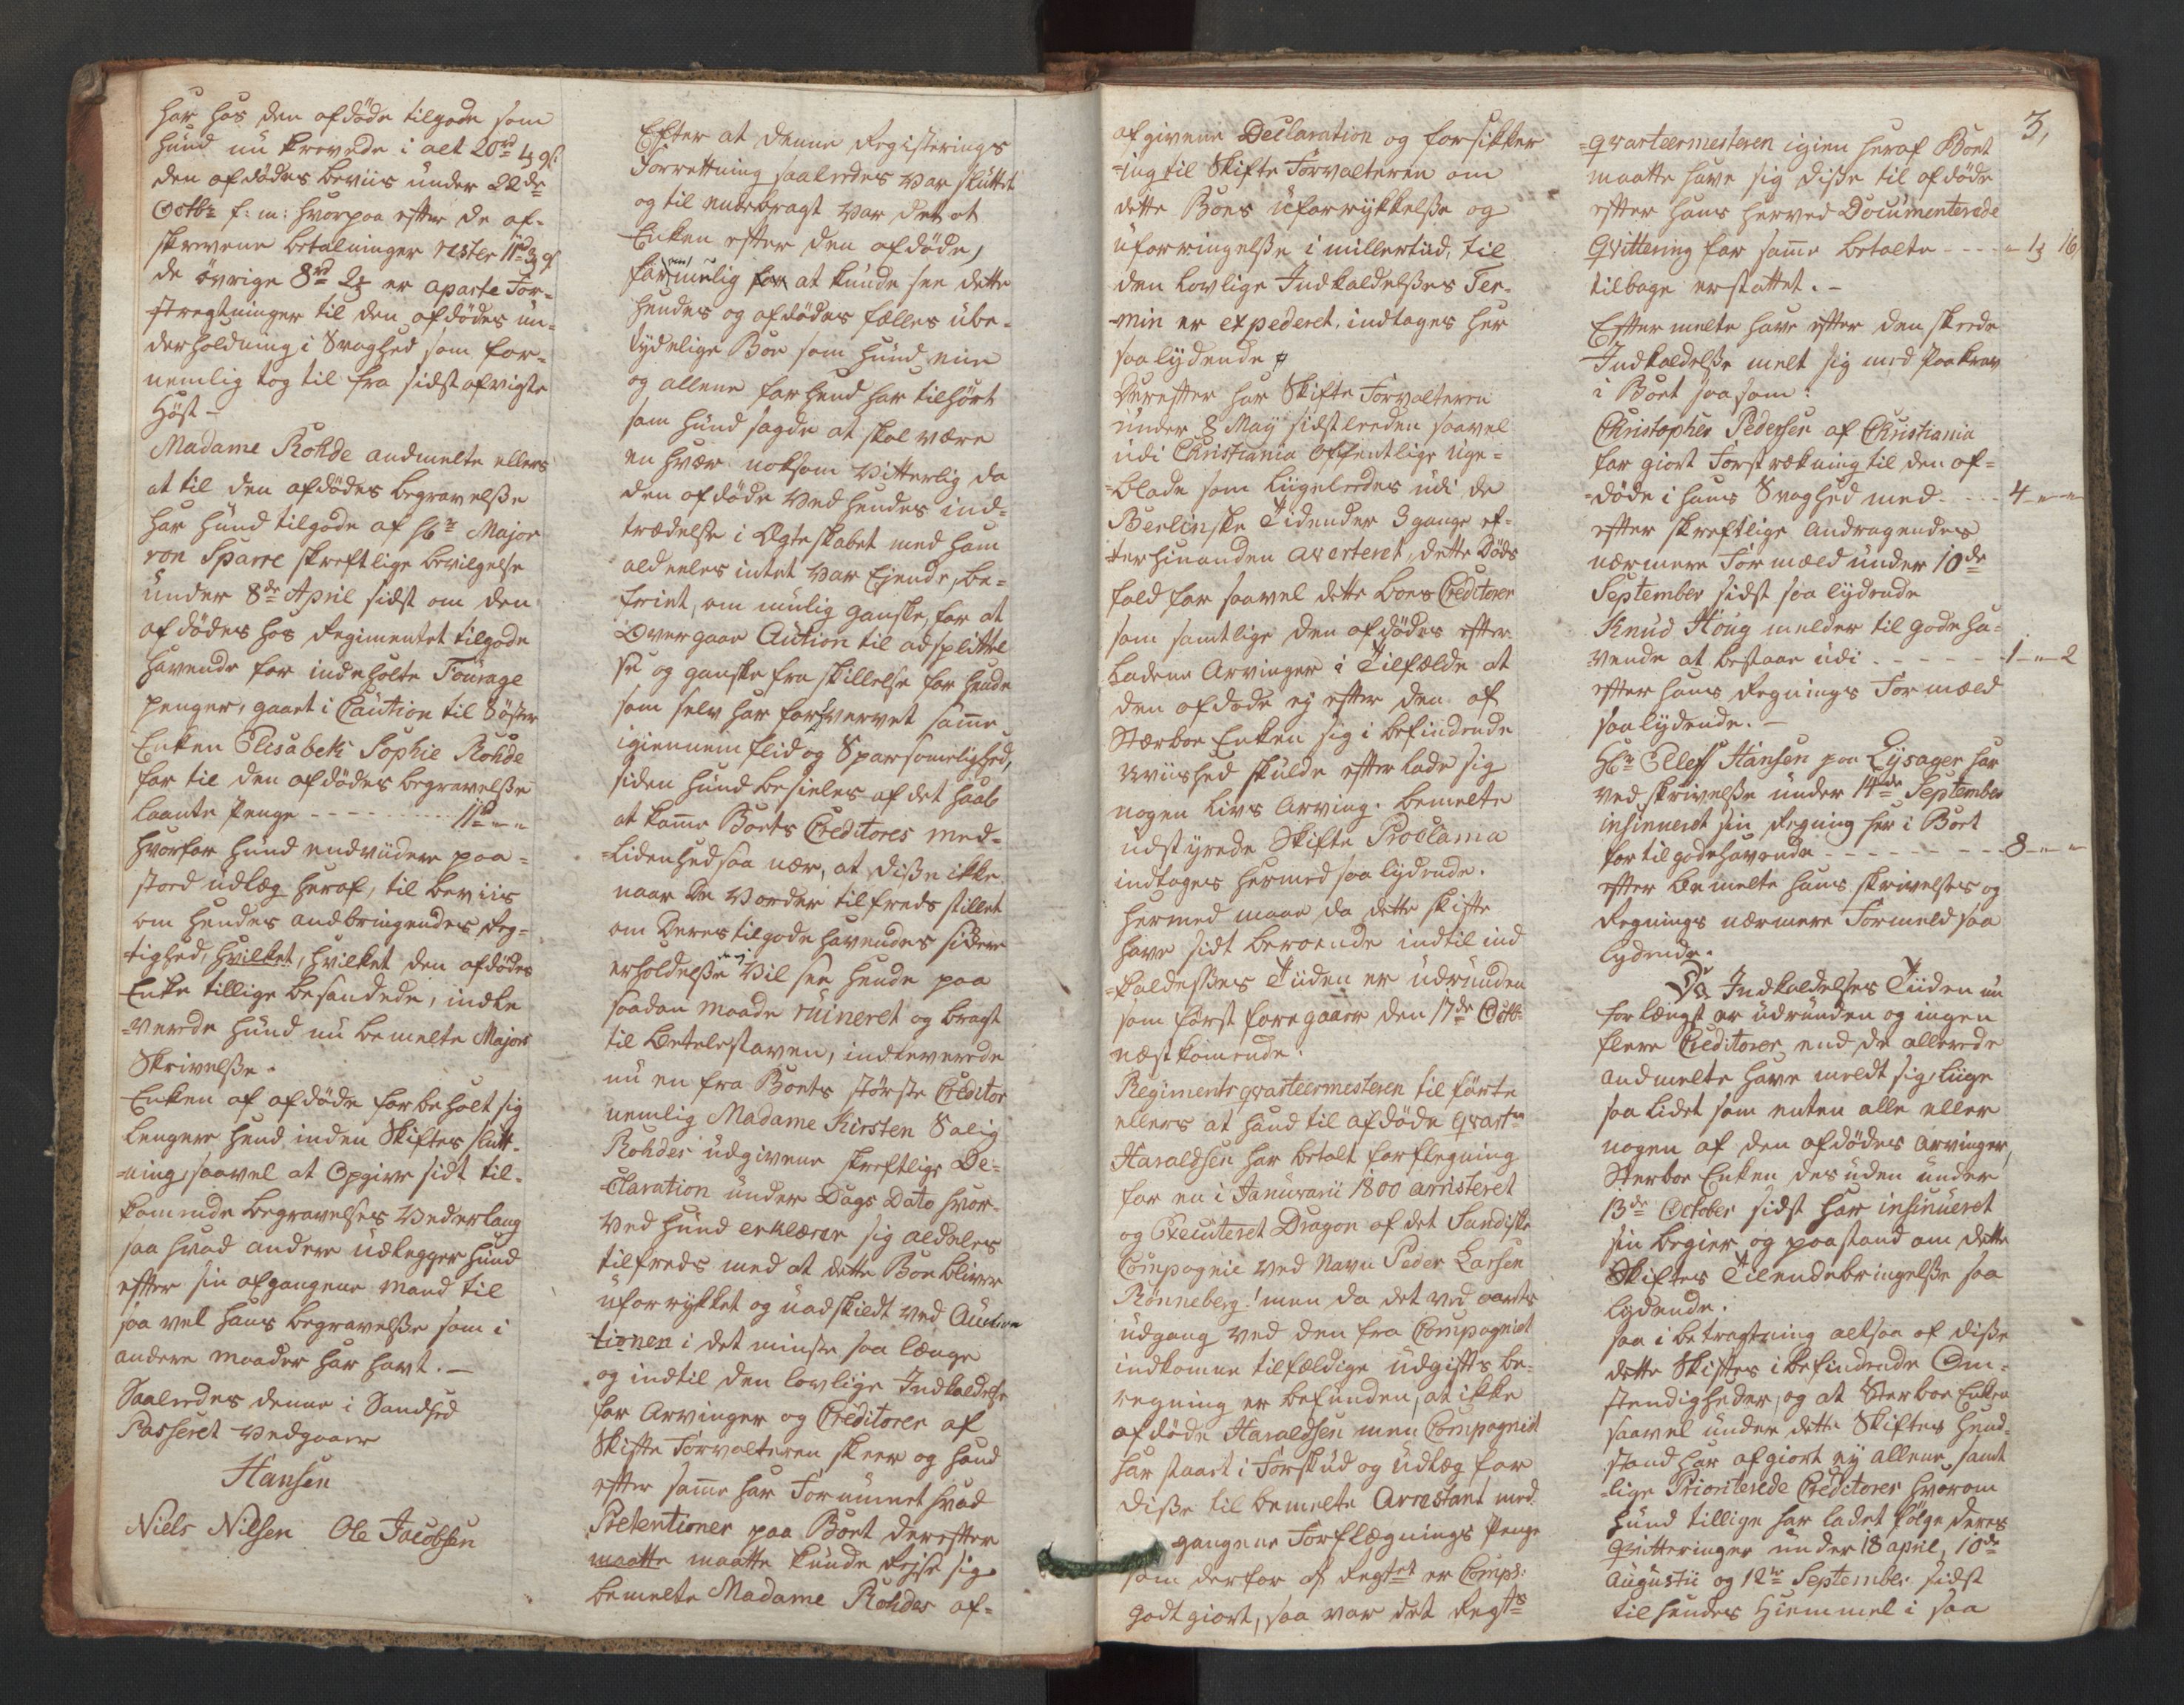 har hos den afdöde tilgode som
hund nu krevede i alt 20rd 4 9s:
den afdödes beviis under 22de
Octbr f: m: hvorpaa efter de af-
skrevene betalninger rester 11rd 3 9s
de övrige 8rd 2 er aparte For-
stregtninger til den afdödes un-
derholdning i Svaghed som for-
nemlig tog til fra sidstafvigte
Höst -
Madame Rohde andmelte ellers
at til den afdödes begravelsse
har hund tilgode af Hr Major
von Sparre skreftlige bevilgelse
under 8de April sidst om den
afdödes hos Regimentet tilgode
havende for indeholte Fourage
penger, gaaet i Caution til Söster
Enken Elisabeth Sophie Rohde
for til den afdödes begravelsse
laante Penge - - - - - - 11rd " "
hvorfor hund endviidere paa-
stoed udlæg heraf, til beviis
om hendes andbringendes Rig-
tighed, hvilket, hvilket den afdödes
Enke tillige besandede, indle
-verede hund nu bemelte Majors
Skrivelsse.
Enken af afdöde forbeholt sig
lengere hend inden Skiftes slutt-
-ning, saavel at Opgive sidt til-
komende begravelses Vederlaug
saa hvad andere udlegger hund
efter sin afgangene Mand til
saa vel hans begravelsse som i
andere maader har havt. -
Saaledes denne i Sandhed
Passeret vedgaaer
Hansen
Niels Nilsen Ole Jacobsen
Efter at denne Registerings
Forrettning saaledes var sluttet
og til endebragt var det at
Enken efter den afdöde,
formelig for at kunde see dette
hendes og afdödes fælles ube-
tydelige Boe som hund eene
og allene forhend har tilhört
som hund sagde at skal være
en hvær noksom vitterlig da
den afdöde ved hendes ind-
trædelse i Ægteskabet med ham
aldeeles intet var Ejende, be-
friet, om mulig ganske, for at
Overgaae Aution til adsplittel
se og ganske fra skillelse for hende
som selv har forhvervet samme
igiennem flid og Sparsomelighed,
siden hund besieles af det haab
at komme Boets Creditores med-
-lidenhed saa nær, at disse ikke
naar de vorder tilfreds stillet
om deres tilgode havendes sidere
erholdelsse vil see hende paa
saadan maade ruineret og bragt
til Betelestaven, indleverede
nu en fra Boets störste Creditor
nemlig Madame Kirsten Salig
Rohdes udgivene skreftlige De-
-claration under Dags Dato hvor-
ved hund erklærer sig aldeles
tilfreds med at dette Boe bliver
uforrykket og uadskildt ved Auction
-tionen i det minste saa længe
og indtil den lovlige Indkaldelse
for Arvinger og Creditorer af
Skifte Forvalteren skeer og hand
efter samme har Forummet hvad
Pretentioner paa Boet derefter
maatte maatte kunde Rejse sig.
bemelte Madame Rohdes af-
3,
afgivene Declaration og forsikker
-ing til Skifte Forvalteren om
dette Boes uforrykkelsse og
uforringelsse imillertiid, til
den lovlige Indkaldelsses Ter-
-min er expederet, indtages her
saalydende
Derefter har Skifte Forvalteren
under 8 May sidstleeden saavel
udi Christiania Offentlige Uge-
-blade som liigeledes udi de
Berlinske Tidender 3 gange ef-
-terhinanden averteret, dette Döds
fald for saavel dette boes Creditorer
som samtlige den afdödes efter-
ladene Arvinger i Tilfælde at
den afdöde ey efter den af
Stærboe Enken sig i befindende
uviished skulde efterlade sig
nogen livs Arving. bemelte
udstyrede Skifte Proclama
indtages hermed saa lydende.
hermed maae da dette skifte
have sidt beroende indtil ind
-kaldelsses Tiiden er udrunden
som först foregaaer den 17de Octb:
næstkomende.
Regimentsqvarteermesteren tilförte
ellers at hand til afdöde qvartm
Haraldsen har betalt Forflegning
for en i Januarii 1800 arristeret
og Executeret Dragon af det Sandiske
Compagnie ved Navn Peder Larsen
Rönneberg! men da det ved aarets
udgang ved den fra Compagniet
indkomne tilfældige udgifts be-
regning er befunden, at ikke
afdöde Haraldsen men Compagniet
har staaet i Forskud og udlæg for
disse til bemelte Arrestant med
gangene Forflægnings Penge
som derfor af Regtet er Comps:
godtgiort, saa var det Regts
-qvarteermesteren igien heraf Boet
maatte have sig disse til afdöde
efter hans herved Documenterede
Qvittering for samme betalte - - - - " 1 16
tilbage erstattet. -
Eftermelte have efter den skeede
Indkaldelsse melt sig med Paakrav
i Boet saasom:
Christopher Pedersen af Christiania
for giort Forstrækning til den af-
-döde i hans Svaghed med - - - 4 " "
efter skreftlige andragendes
nærmere Formæld under 10de
September sidst saa lydende
Knud Houg melder til gode ha-
vende at bestaae udi - - - - - - 1 " 2
efter hans Regnings Formæld
saalydende. -
Hr Ellef Hansen paa Lysager har
ved skrivelsse under 14de September
insinueret sin Regning her i Boet
for tilgodehavende - - - - - - - 8 " "
efter bemelte hans skrivelses og
Regnings nærmere Formeld saa
lydende.
Da Indkaldelses Tiiden nu
forlængst er udrunden og ingen
flere Creditorer end de allerede
andmelte have meldt sig, liige
saa lidet som enten alle eller
nogen af den afdödes Arvinger,
Sterboe Enken desuden under
13de October sidst har insinueret
sin begier og paastand om dette
Skiftes Tilendebringelsse saa
lydende.
saa i betragtning altsaa af disse
dette Skiftes ibefindende Om-
stendigheder, og at Sterboe Enken
saavel under dette Skiftes hend-
stand har afgiort ey allene samt
-lige Prioriterede Creditorer hvorom
hund tillige har ladet fölge deres
Qvitteringer under 18 april, 10de
Augustii og 12te September sidst
til hendes Hiemmel i saa